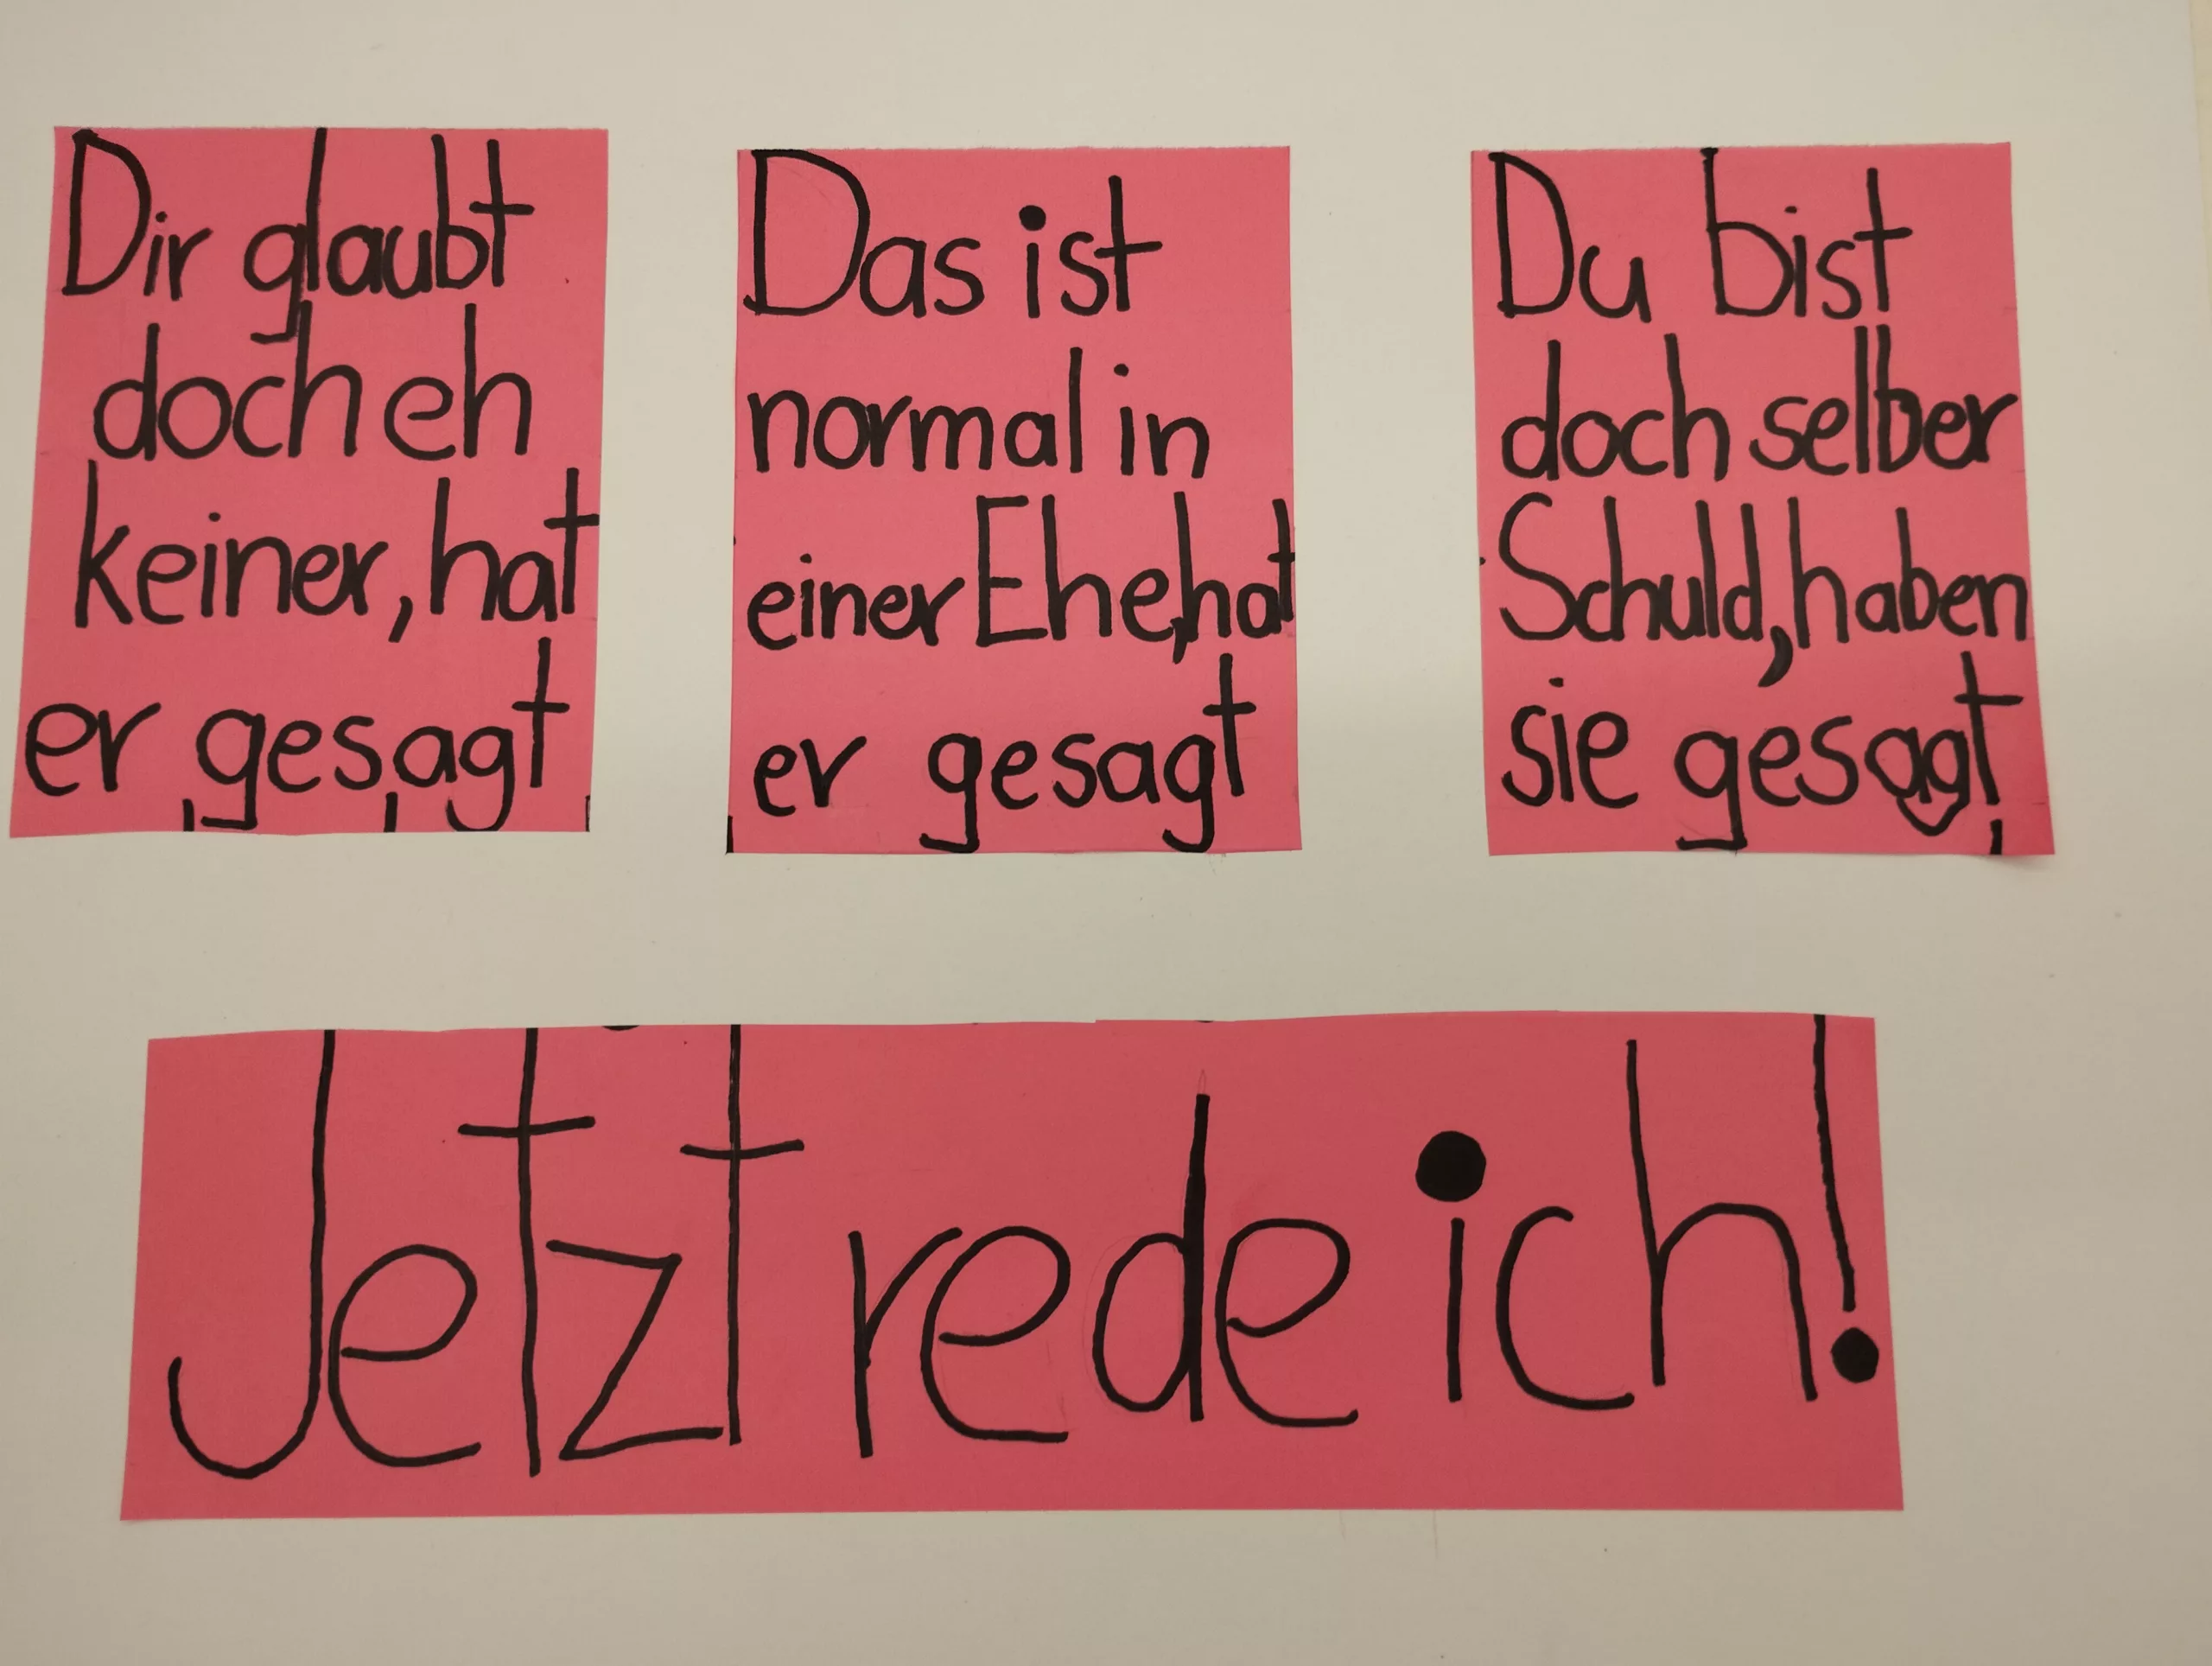 Dir glaubt
doch eh
keiner, hat
er gesagt
Das ist
normal in
einer Ehe, hat
er gesagt
Du bist
doch selber
Schuld, haben
sie gesagt
Jetzt rede ich!